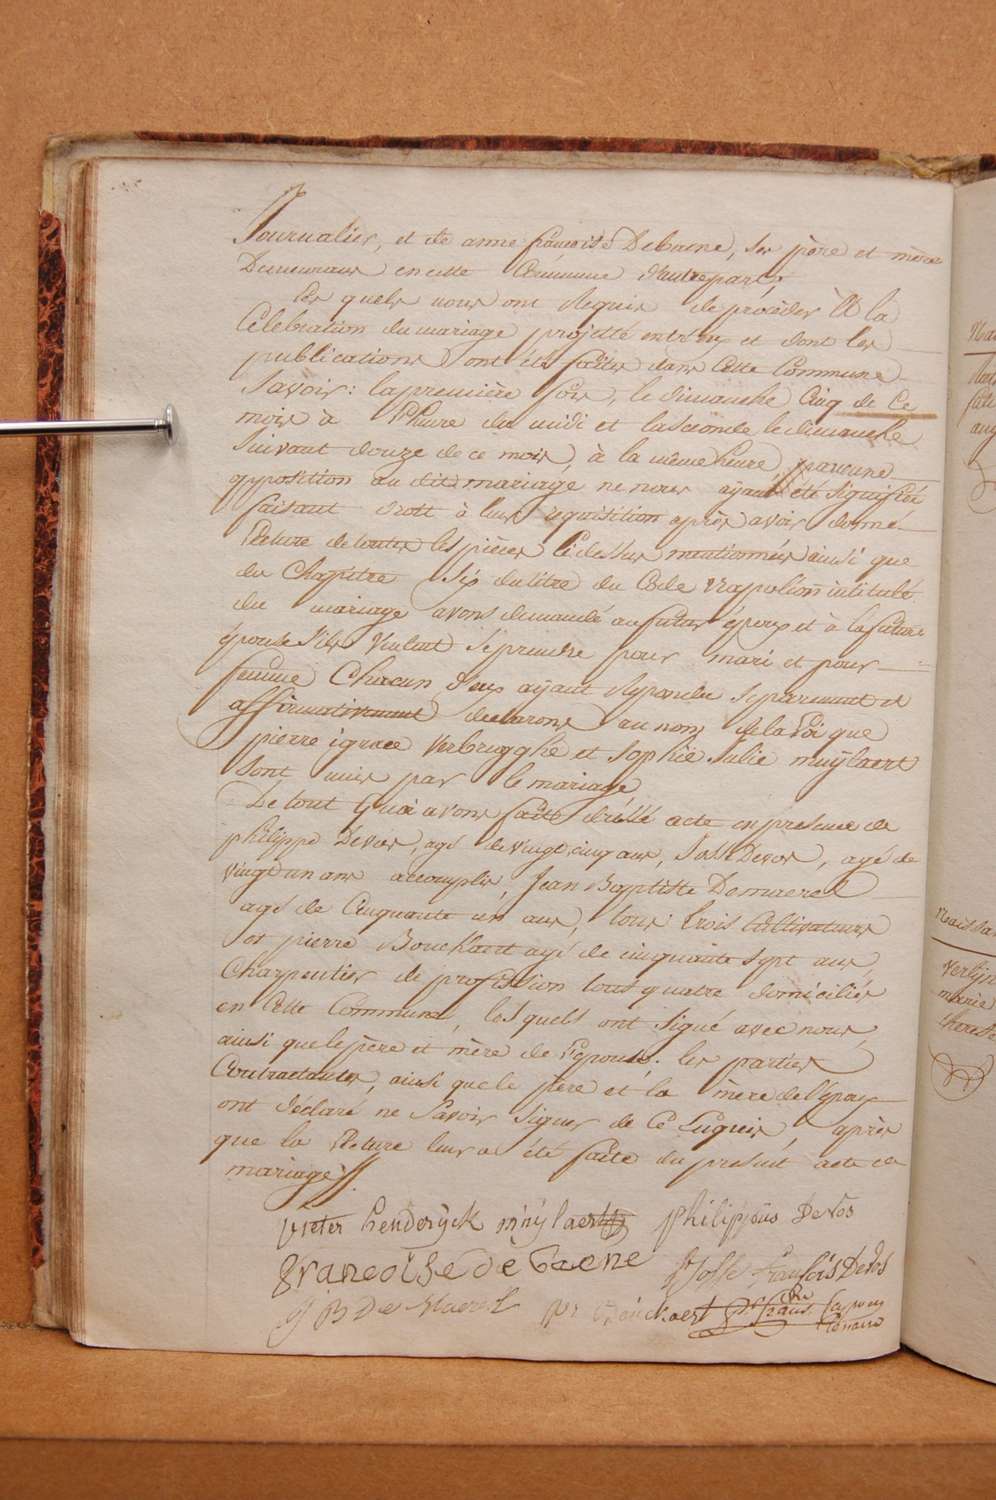 Journalier, et de anne françoise Debaene, ses père et mère
Demeurans en cette Commune d'autrepart;
Les quels nous ont Requis de procéder à la
Célébration du mariage projetté entr'eux et dont les
publications ont été faites dans Cette Commune
Savoir: la première fois, le dimanche Cinq de Ce
mois à l'heure du midi et la seconde le dimanche
Suivant douze de ce mois, à la même heure, aucune
opposition au dit mariage ne nous ayant été signifiée
faisant droit à leur requisition après avoir donné
Lecture de toutes les pièces Ci dessus mentionnées ainsi que
du Chapitre Six du titre du Code Napoléon intitulé
du mariage avons demandé au futur époux et à la future
épouse S'ils Veulent Se prendre pour mari et pour
femme Chacun d'eux ayant Répondu Séparement et
affirmativement declarons au nom de la Loi que
pierre ignace Verbrugghe et Sophie Julie muÿlaert
Sont unis par le mariage
De tout Quoi avons faite dressé acte en présence de
philippe Devos, agé de vingt cinq ans, Josse Devos, agé de
vingt un ans accomplis, Jean Baptiste Demaerel
agé de Cinquante un ans, tous trois Cultivateurs
et pierre Bouckaert agé de cinquante sept ans,
Charpentier de profession tous quatre domiciliés
en Cette Commune, les quels ont signé avec nous,
ainsi que le père et mère de l'Epouse; les parties
Contractantes, ainsi que le père et la mère de l'époux
ont déclaré ne Savoir signer de Ce Enquis, après
que la Lecture leur a été faite du présent acte de
mariage
pieter henderÿck mÿlaert philippüs DeVos
francoise de baene Josse François DeVos
J B De Maerel Pr Bouckaert
Nais
Verlyn
marie
therese